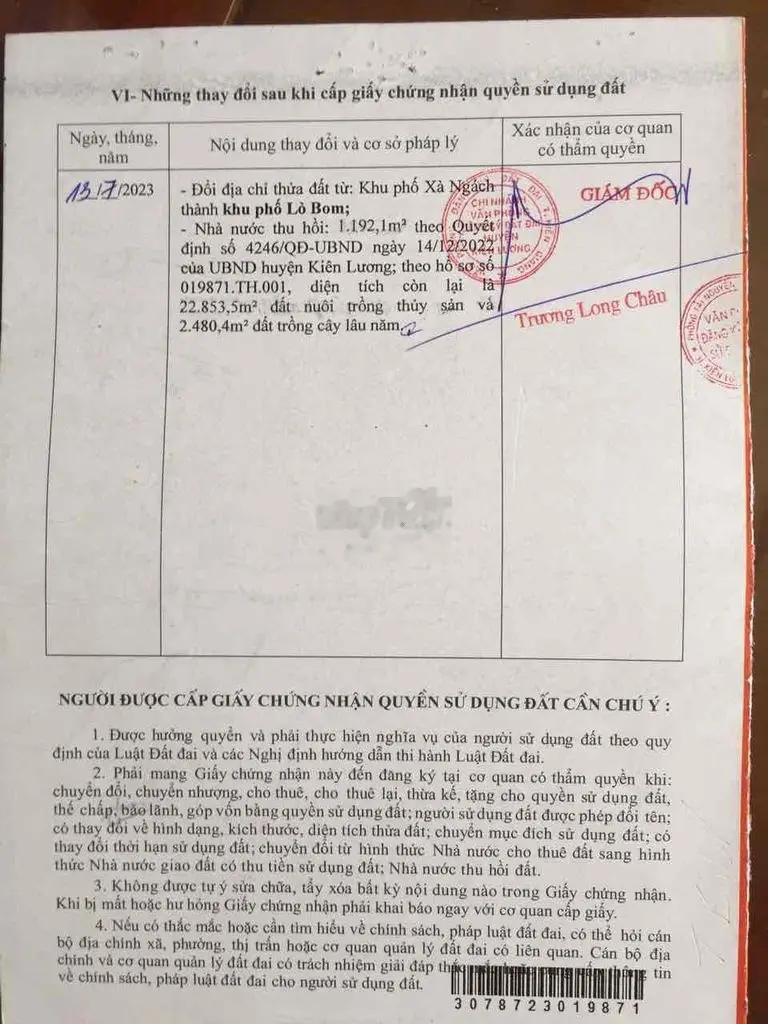 VI- Những thay đổi sau khi cấp giấy chứng nhận quyền sử dụng đất
Ngày, tháng,
năm
Nội dung thay đổi và cơ sở pháp lý
Xác nhận của cơ quan
có thẩm quyền
13/7/2023
- Đổi địa chỉ thửa đất từ: Khu phố Xà Ngách
thành khu phố Lò Bom;
- Nhà nước thu hồi: 1.192,1m² theo Quyết
định số 4246/QĐ-UBND ngày 14/12/2022
của UBND huyện Kiên Lương; theo hồ sơ số
019871.TH.001, diện tích còn lại là
22.853,5m² đất nuôi trồng thủy sản và
2.480,4m² đất trồng cây lâu năm.
GIÁM ĐỐC
CHI NHÁNH
VĂN PHÒNG
HUYỆN
KIÊN LƯƠNG
Trương Long Châu
NGƯỜI ĐƯỢC CẤP GIẤY CHỨNG NHẬN QUYỀN SỬ DỤNG ĐẤT CẦN CHÚ Ý :
1. Được hưởng quyền và phải thực hiện nghĩa vụ của người sử dụng đất theo quy
định của Luật Đất đai và các Nghị định hướng dẫn thi hành Luật Đất đai.
2. Phải mang Giấy chứng nhận này đến đăng ký tại cơ quan có thẩm quyền khi:
chuyển đổi, chuyển nhượng, cho thuê, cho thuê lại, thừa kế, tặng cho quyền sử dụng đất,
thế chấp, bảo lãnh, góp vốn bằng quyền sử dụng đất; người sử dụng đất được phép đổi tên;
có thay đổi về hình dạng, kích thước, diện tích thửa đất; chuyển mục đích sử dụng đất; có
thay đổi thời hạn sử dụng đất; chuyển đổi từ hình thức Nhà nước cho thuê đất sang hình
thức Nhà nước giao đất có thu tiền sử dụng đất; Nhà nước thu hồi đất.
3. Không được tự ý sửa chữa, tẩy xóa bất kỳ nội dung nào trong Giấy chứng nhận.
Khi bị mất hoặc hư hỏng Giấy chứng nhận phải khai báo ngay với cơ quan cấp giấy.
4. Nếu có thắc mắc hoặc cần tìm hiểu về chính sách, pháp luật đất đai, có thể hỏi cán
bộ địa chính xã, phường, thị trấn hoặc cơ quan quản lý đất đai có liên quan. Cán bộ địa
chính và cơ quan quản lý đất đai có trách nhiệm giải đáp tin
về chính sách, pháp luật đất đai cho người sử dụng đất.
3078723019871